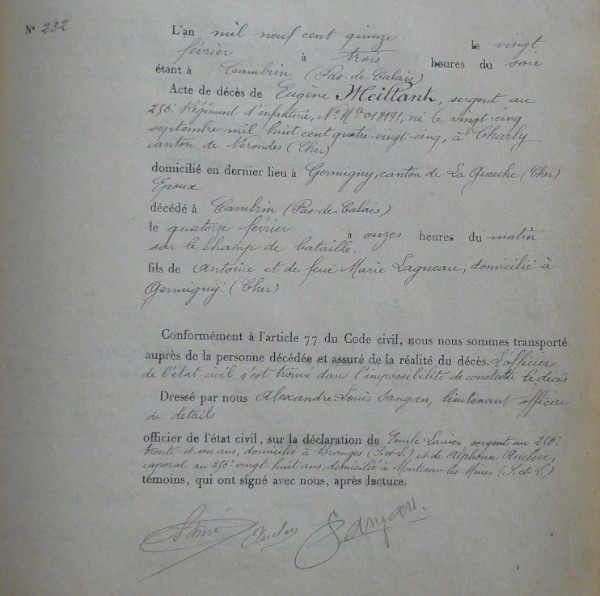 N° 232
L'an mil neuf cent quinze le vingt
février à trois heures du soir
étant à Cambrin (Pas-de-Calais)
Acte de décès de Eugène Meiltanh, sergent au
256e Régiment d'infanterie, né le vingt-cinq
septembre mil huit cent quatre-vingt-cinq, à Charly
canton de Nérondes (Cher)
domicilié en dernier lieu à Germigny, canton de La Guerche (Cher)
Epoux
décédé à Cambrin (Pas-de-Calais)
le quatorze février à onze heures du matin
sur le champ de bataille.
fils de Antoine et de feue Marie Lagneau, domicilié à
Germigny (Cher)
Conformément à l'article 77 du Code civil, nous nous sommes transporté
auprès de la personne décédée et assuré de la réalité du décès. L'officier
de l'état civil s'est trouvé dans l'impossibilité de constater le décès
Dressé par nous Alexandre Louis, lieutenant officier
de détails
officier de l'état civil, sur la déclaration de Emile, sergent au 256e
trente et un ans, domicilié à Branges (S.et L.) et de Alphonse Auclerc,
caporal au 256e vingt huit ans, domicilié à Montceau-les-Mines (S.et L.)
témoins, qui ont signé avec nous, après lecture.